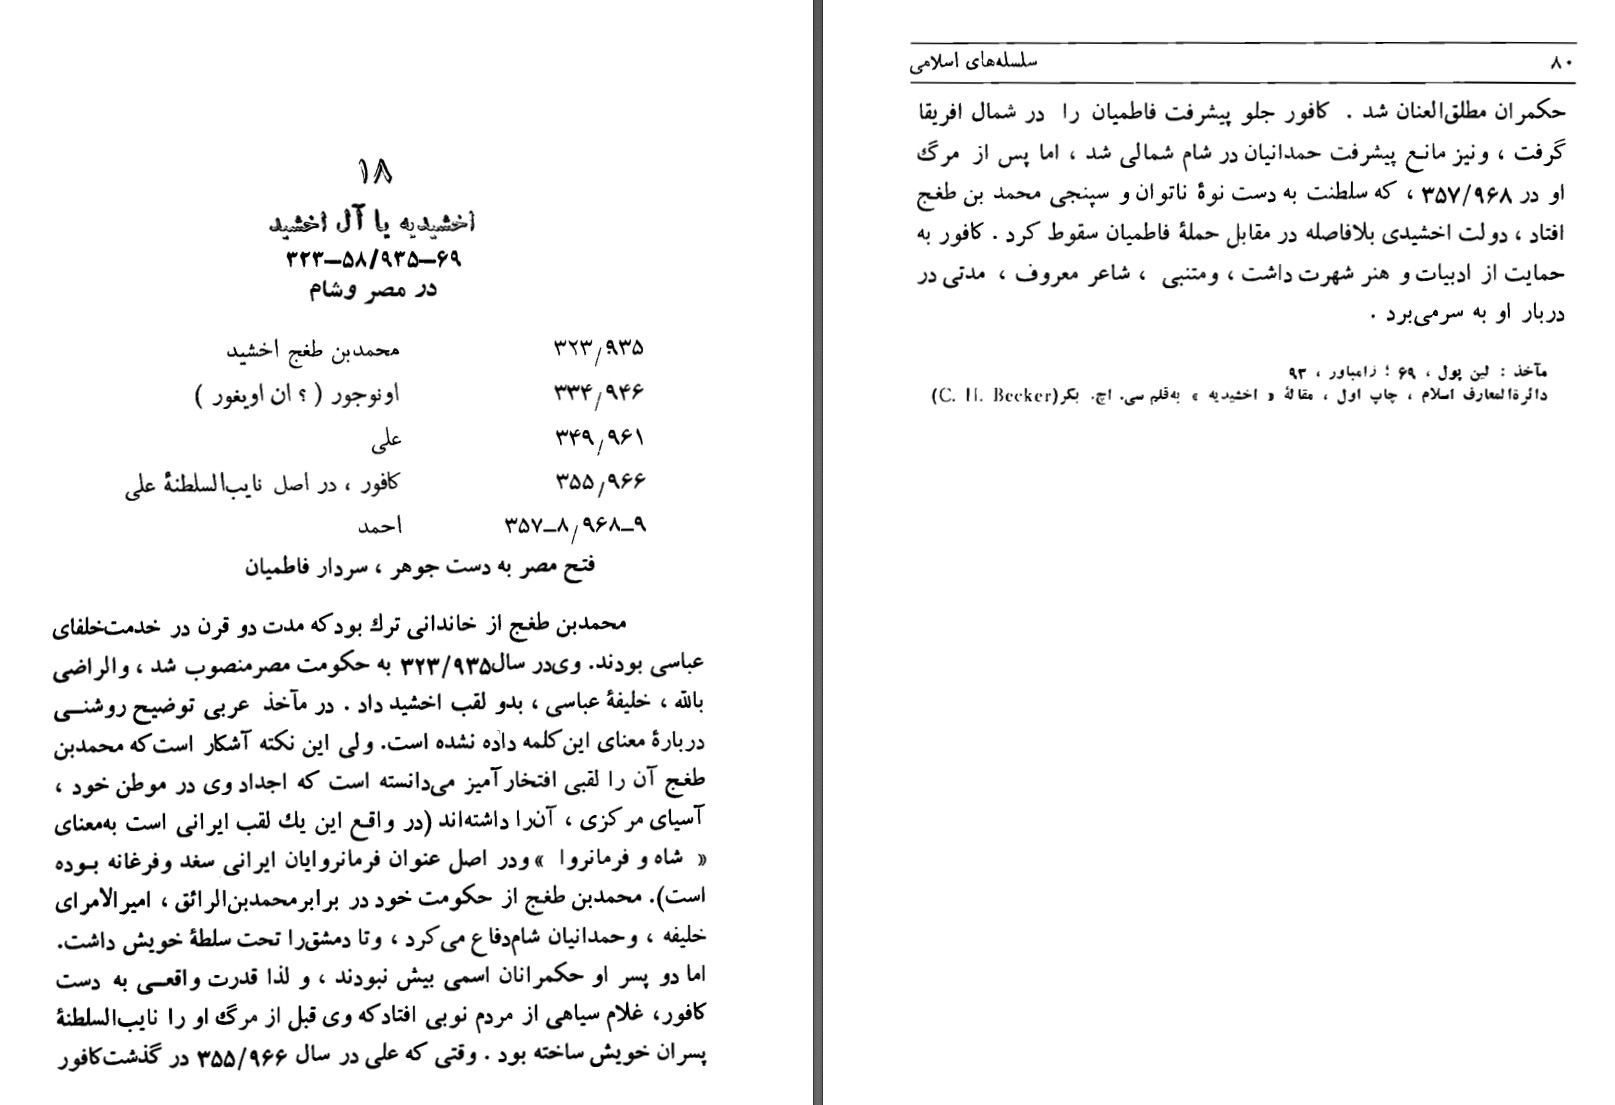 ۱۸
اخشیدیه یا آل اخشید
۳۲۳–۵۸/۹۳۵–۶۹
در مصر وشام
۳۲۳/۹۳۵ محمدبن طغج اخشید
۳۳۴/۹۴۶ اونوجور (؟ ان اویغور)
۳۴۹/۹۶۱ علی
۳۵۵/۹۶۶ کافور ، در اصل نایب‌السلطنهٔ علی
۳۵۷–۸/۹۶۸–۹ احمد
فتح مصر به دست جوهر ، سردار فاطمیان
محمدبن طغج از خاندانی ترك بودکه مدت دو قرن در خدمت‌خلفای
عباسی بودند. وی‌در سال۳۲۳/۹۳۵ به حکومت مصرمنصوب شد ، والراضی
بالله ، خلیفهٔ عباسی ، بدو لقب اخشید داد . در مآخذ عربی توضیح روشنی
دربارهٔ معنای این‌کلمه داده نشده است. ولی این نکته آشکار است‌که محمدبن
طغج آن را لقبی افتخارآمیز می‌دانسته است که اجداد وی در موطن خود ،
آسیای مرکزی ، آن‌را داشته‌اند (در واقع این یك لقب ایرانی است به‌معنای
« شاه و فرمانروا » ودر اصل عنوان فرمانروایان ایرانی سغد وفرغانه بوده
است). محمدبن طغج از حکومت خود در برابرمحمدبن‌الرائق ، امیرالامرای
خلیفه ، وحمدانیان شام‌دفاع می‌کرد ، وتا دمشق‌را تحت سلطهٔ خویش داشت.
اما دو پسر او حکمرانان اسمی بیش نبودند ، و لذا قدرت واقعی به دست
کافور، غلام سیاهی از مردم نوبی افتادکه وی قبل از مرگ او را نایب‌السلطنهٔ
پسران خویش ساخته بود . وقتی که علی در سال ۳۵۵/۹۶۶ در گذشت‌کافور
۸۰ سلسله‌های اسلامی
حکمران مطلق‌العنان شد . کافور جلو پیشرفت فاطمیان را در شمال افریقا
گرفت ، ونیز مانع پیشرفت حمدانیان در شام شمالی شد ، اما پس از مرگ
او در ۳۵۷/۹۶۸ ، که سلطنت به دست نوهٔ ناتوان و سپنجی محمد بن طغج
افتاد ، دولت اخشیدی بلافاصله در مقابل حملهٔ فاطمیان سقوط کرد . کافور به
حمایت از ادبیات و هنر شهرت داشت ، ومتنبی ، شاعر معروف ، مدتی در
دربار او به سرمی‌برد .
مآخذ : لین پول ، ۶۹ ؛ زامباور ، ۹۳
دائرةالمعارف اسلام ، چاپ اول ، مقالهٔ « اخشیدیه » به‌قلم سی. اچ. بکر(C. H. Becker)